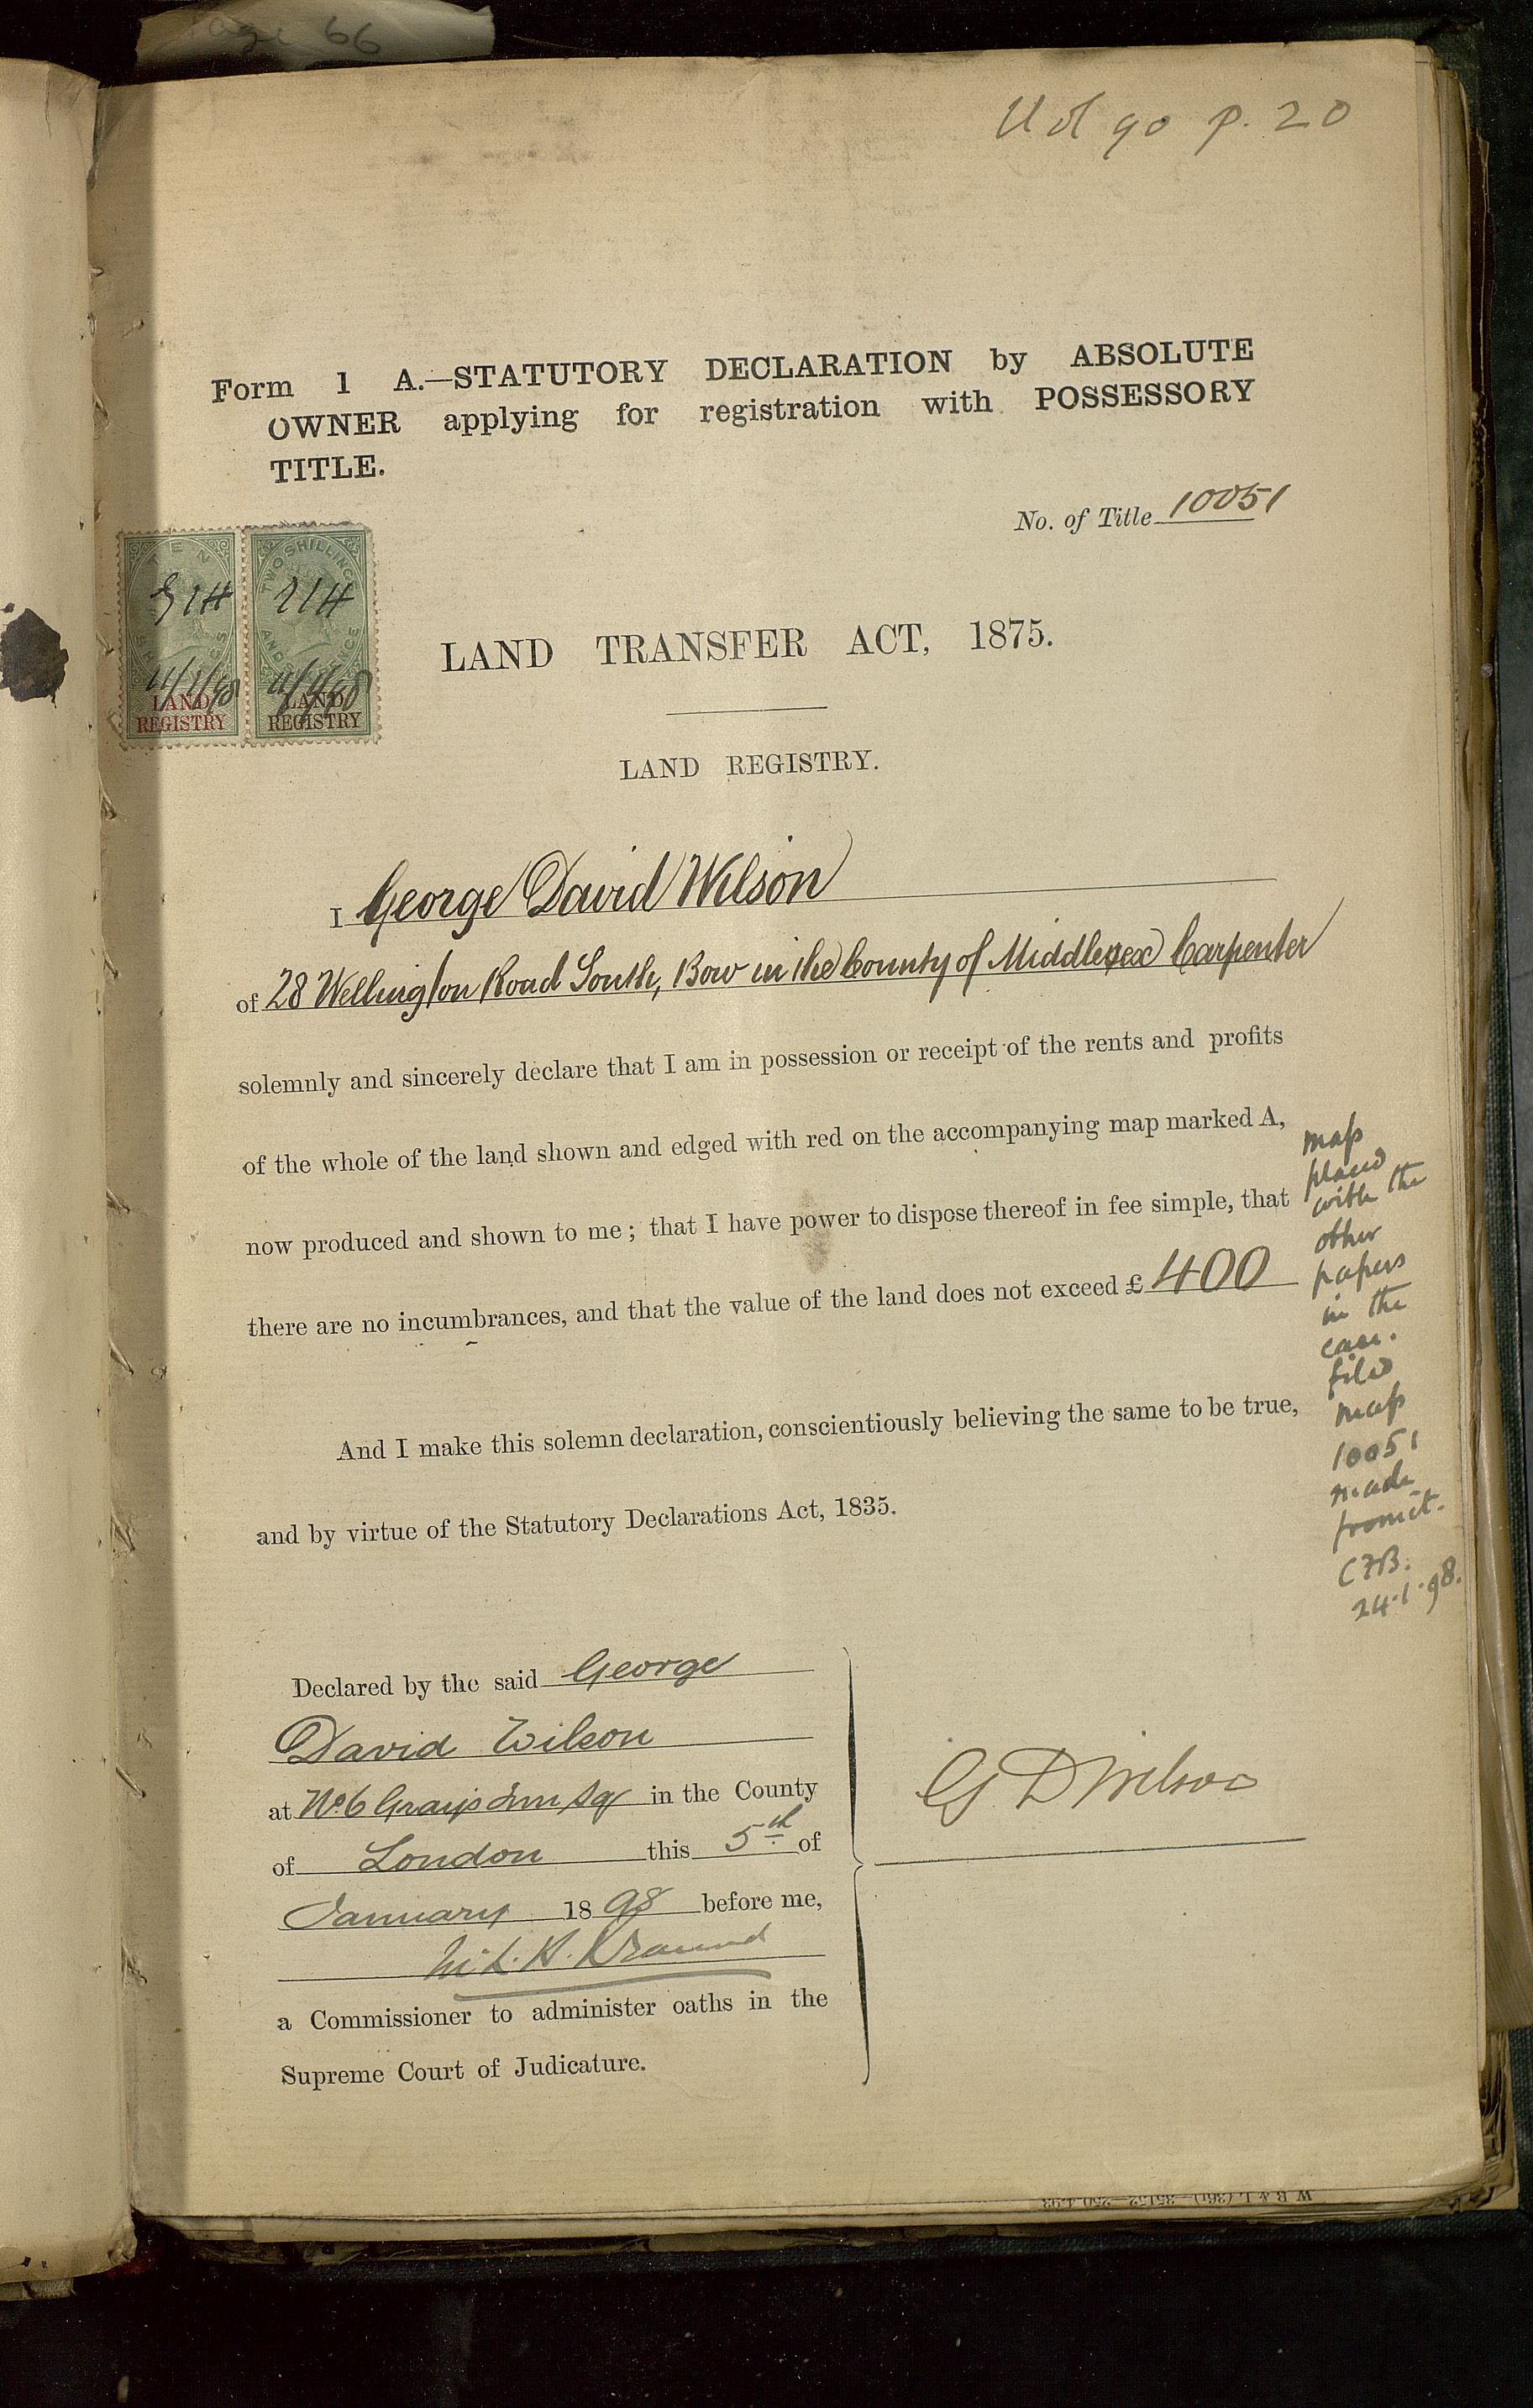 page 66
Vol 90 p. 20
Form 1 A.—STATUTORY DECLARATION by ABSOLUTE
OWNER applying for registration with POSSESSORY
TITLE.
No. of Title 10051
TEN SHILLINGS
LAND
REGISTRY
TWO SHILLINGS AND SIXPENCE
LAND
REGISTRY
LAND TRANSFER ACT, 1875.
LAND REGISTRY.
I George David Wilson
of 28 Wellington Road South, Bow in the County of Middlesex Carpenter
solemnly and sincerely declare that I am in possession or receipt of the rents and profits
of the whole of the land shown and edged with red on the accompanying map marked A,
now produced and shown to me; that I have power to dispose thereof in fee simple, that
there are no incumbrances, and that the value of the land does not exceed £ 400
And I make this solemn declaration, conscientiously believing the same to be true,
and by virtue of the Statutory Declarations Act, 1835.
map
placed
with the
other
papers
in the
case.
filed
map
10051
made
from it.
C7B.
24.1.98.
Declared by the said George
David Wilson
at No. 6 Grays Inn Sq in the County
of London this 5th of
January 1898 before me,
a Commissioner to administer oaths in the
Supreme Court of Judicature.
G D Wilson
W B & L (36t)—35152—250-4-93